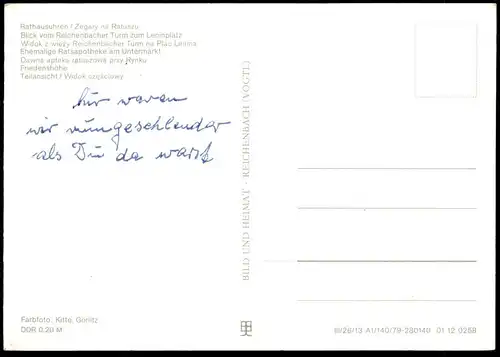 Rathausuhren / Zegary na Ratuszu
Blick vom Reichenbacher Turm zum Leninplatz
Widok z wieży Reichenbacher Turm na Plac Lenina
Ehemalige Ratsapotheke am Untermarkt
Dawna apteka ratuszowa przy Rynku
Friedenshöhe
Teilansicht / Widok częściowy
hier waren
wir rumgeschlendar
als Du da warst
BILD UND HEIMAT · REICHENBACH (VOGTL)
Farbfoto: Kitte, Görlitz
DDR 0,20 M
III/26/13 A1/140/79-280140 01 12 0258